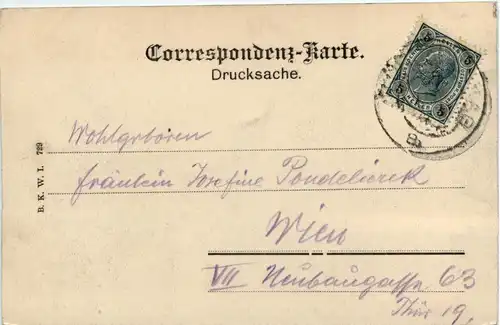 Correspondenz-Karte.
Drucksache.
Wohlgeboren
Fräulein Josefine Pondelicek
Wien
VII Neubaugasse 63
Thür 19.
B. K. W. I. 729